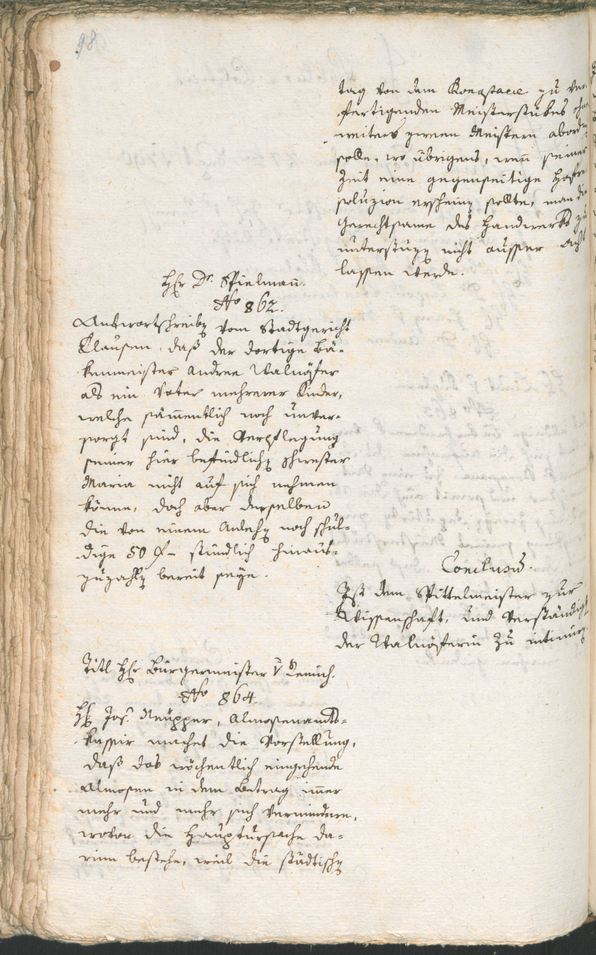 98
tag von dem Konzstanz zu ver-
fertigenden Meisterstükes ohne
weiters zween Meistern abord
solle, wo übrigens, wenn seiner
Zeit eine gegenseitige Hofre-
soluzion erscheinen sollte, man die
Gerechtsame des Handwerks zu
unterstüzen nicht ausser Acht
lassen werde.
Hr. Dr. Spielmann.
No 862.
Antwortschreiben vom Stadtgericht
Clausen, daß der dortige Bä-
kenmeister Andree Walnöfer
als ein Vater mehrerer Kinder,
welche sämmentlich noch unver-
sorgt sind, die Verpflegung
seiner hier befindlichen Schwester
Maria nicht auf sich nehmen
könne, doch aber derselben
die von einem Anlehen noch schul-
dige 50 f stündlich hinaus-
zuzahlen bereit seye.
Conclusum.
Ist dem Spittelmeister zur
Wissenschaft, und Verständig
der Walnöferin zu intimiren
Titl Hr Bürgermeister v
No 864.
Hr Jos. Neupper, Almosenamts-
kassir machet die Vorstellung,
daß das wöchentlich eingehende
Almosen in dem Betrag immer
mehr und mehr sich vermindere,
wovon die Hauptursache da-
rinn bestehe, weil die städtischen